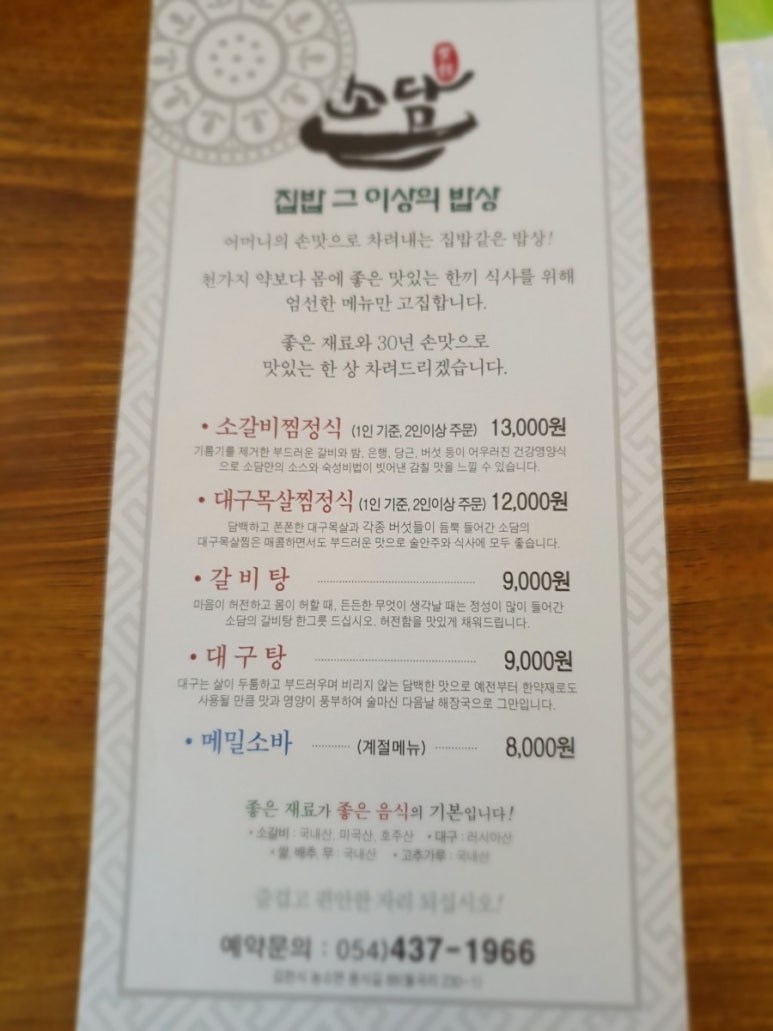 소담
집밥 그 이상의 밥상
어머니의 손맛으로 차려내는 집밥같은 밥상!
천가지 약보다 몸에 좋은 맛있는 한끼 식사를 위해
엄선한 메뉴만 고집합니다.
좋은 재료와 30년 손맛으로
맛있는 한 상 차려드리겠습니다.
• 소갈비찜정식 (1인 기준, 2인이상 주문) 13,000원
기름기를 제거한 부드러운 갈비와 밤, 은행, 당근, 버섯 등이 어우러진 건강영양식
으로 소담만의 소스와 숙성비법이 빚어낸 감칠 맛을 느낄 수 있습니다.
• 대구목살찜정식 (1인 기준, 2인이상 주문) 12,000원
담백하고 쫀쫀한 대구목살과 각종 버섯들이 듬뿍 들어간 소담의
대구목살찜은 매콤하면서도 부드러운 맛으로 술안주와 식사에 모두 좋습니다.
• 갈 비 탕 9,000원
마음이 허전하고 몸이 허할 때, 든든한 무엇이 생각날 때는 정성이 많이 들어간
소담의 갈비탕 한그릇 드십시오. 허전함을 맛있게 채워드립니다.
• 대 구 탕 9,000원
대구는 살이 두툼하고 부드러우며 비리지 않는 담백한 맛으로 예전부터 한약재로도
사용될 만큼 맛과 영양이 풍부하여 술마신 다음날 해장국으로 그만입니다.
• 메밀소바 (계절메뉴) 8,000원
좋은 재료가 좋은 음식의 기본입니다!
• 소갈비 : 국내산, 미국산, 호주산 • 대구 : 러시아산
• 쌀, 배추, 무 : 국내산 • 고추가루 : 국내산
즐겁고 편안한 자리 되십시오!
예약문의 : 054)437-1966
김천시 농소면